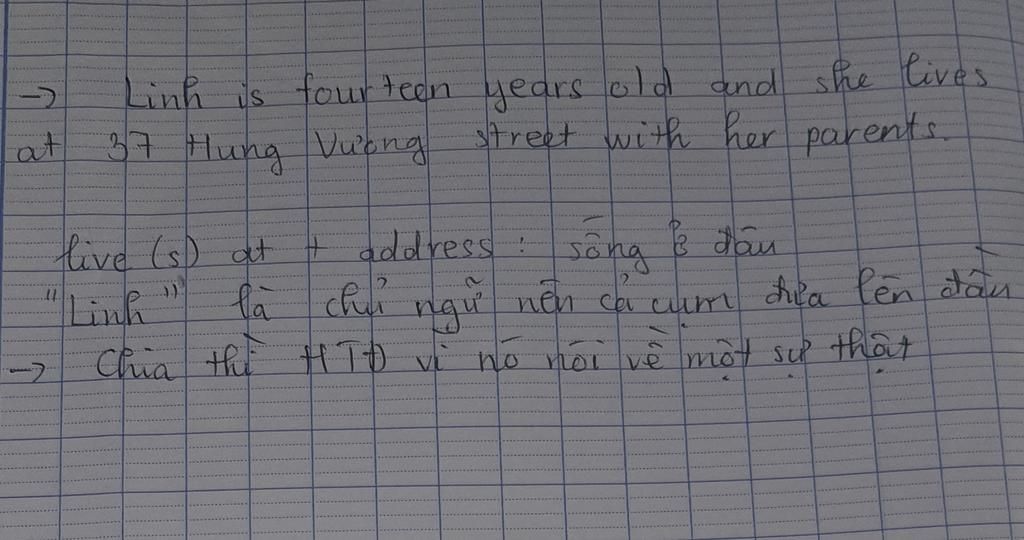 → Linh is fourteen years old and she lives
at 37 Hung Vương street with her parents.
live (s) at + address: sống ở đâu
"Linh" là chủ ngữ nên cả cụm đưa lên đầu
→ Chia thì HTĐ vì nó nói về một sự thật